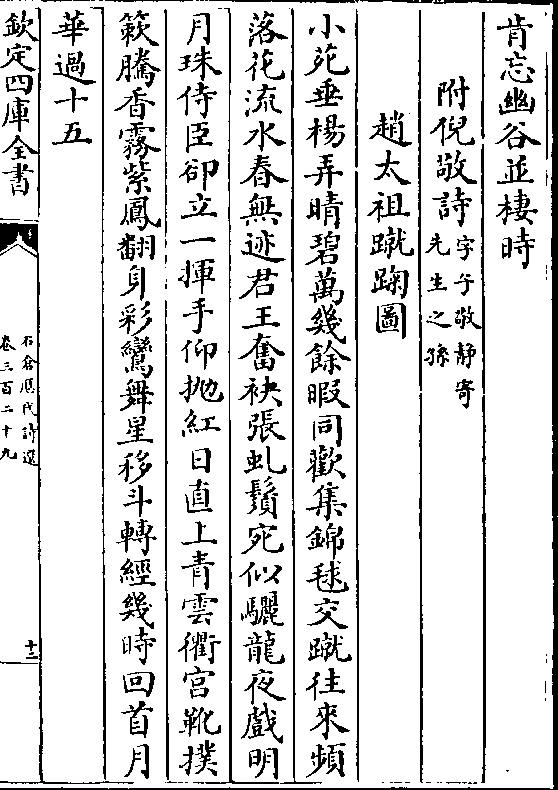 肯忘幽谷並棲時
附倪敬詩字子敬静寄
先生之孫
趙太祖蹴踘圖
小苑垂楊弄晴碧萬幾餘暇同歡集錦毬交蹴往來頻
落花流水春無迹君王奮袂張虬鬚宛似驪龍夜戲明
月珠侍臣卻立一揮手仰抛紅日直上青雲衢宫靴撲
簌騰香霧紫鳳翻身彩鸞舞星移斗轉經幾時回首月
華過十五
欽定四庫全書
石倉歷代詩選
卷三百二十九
十三